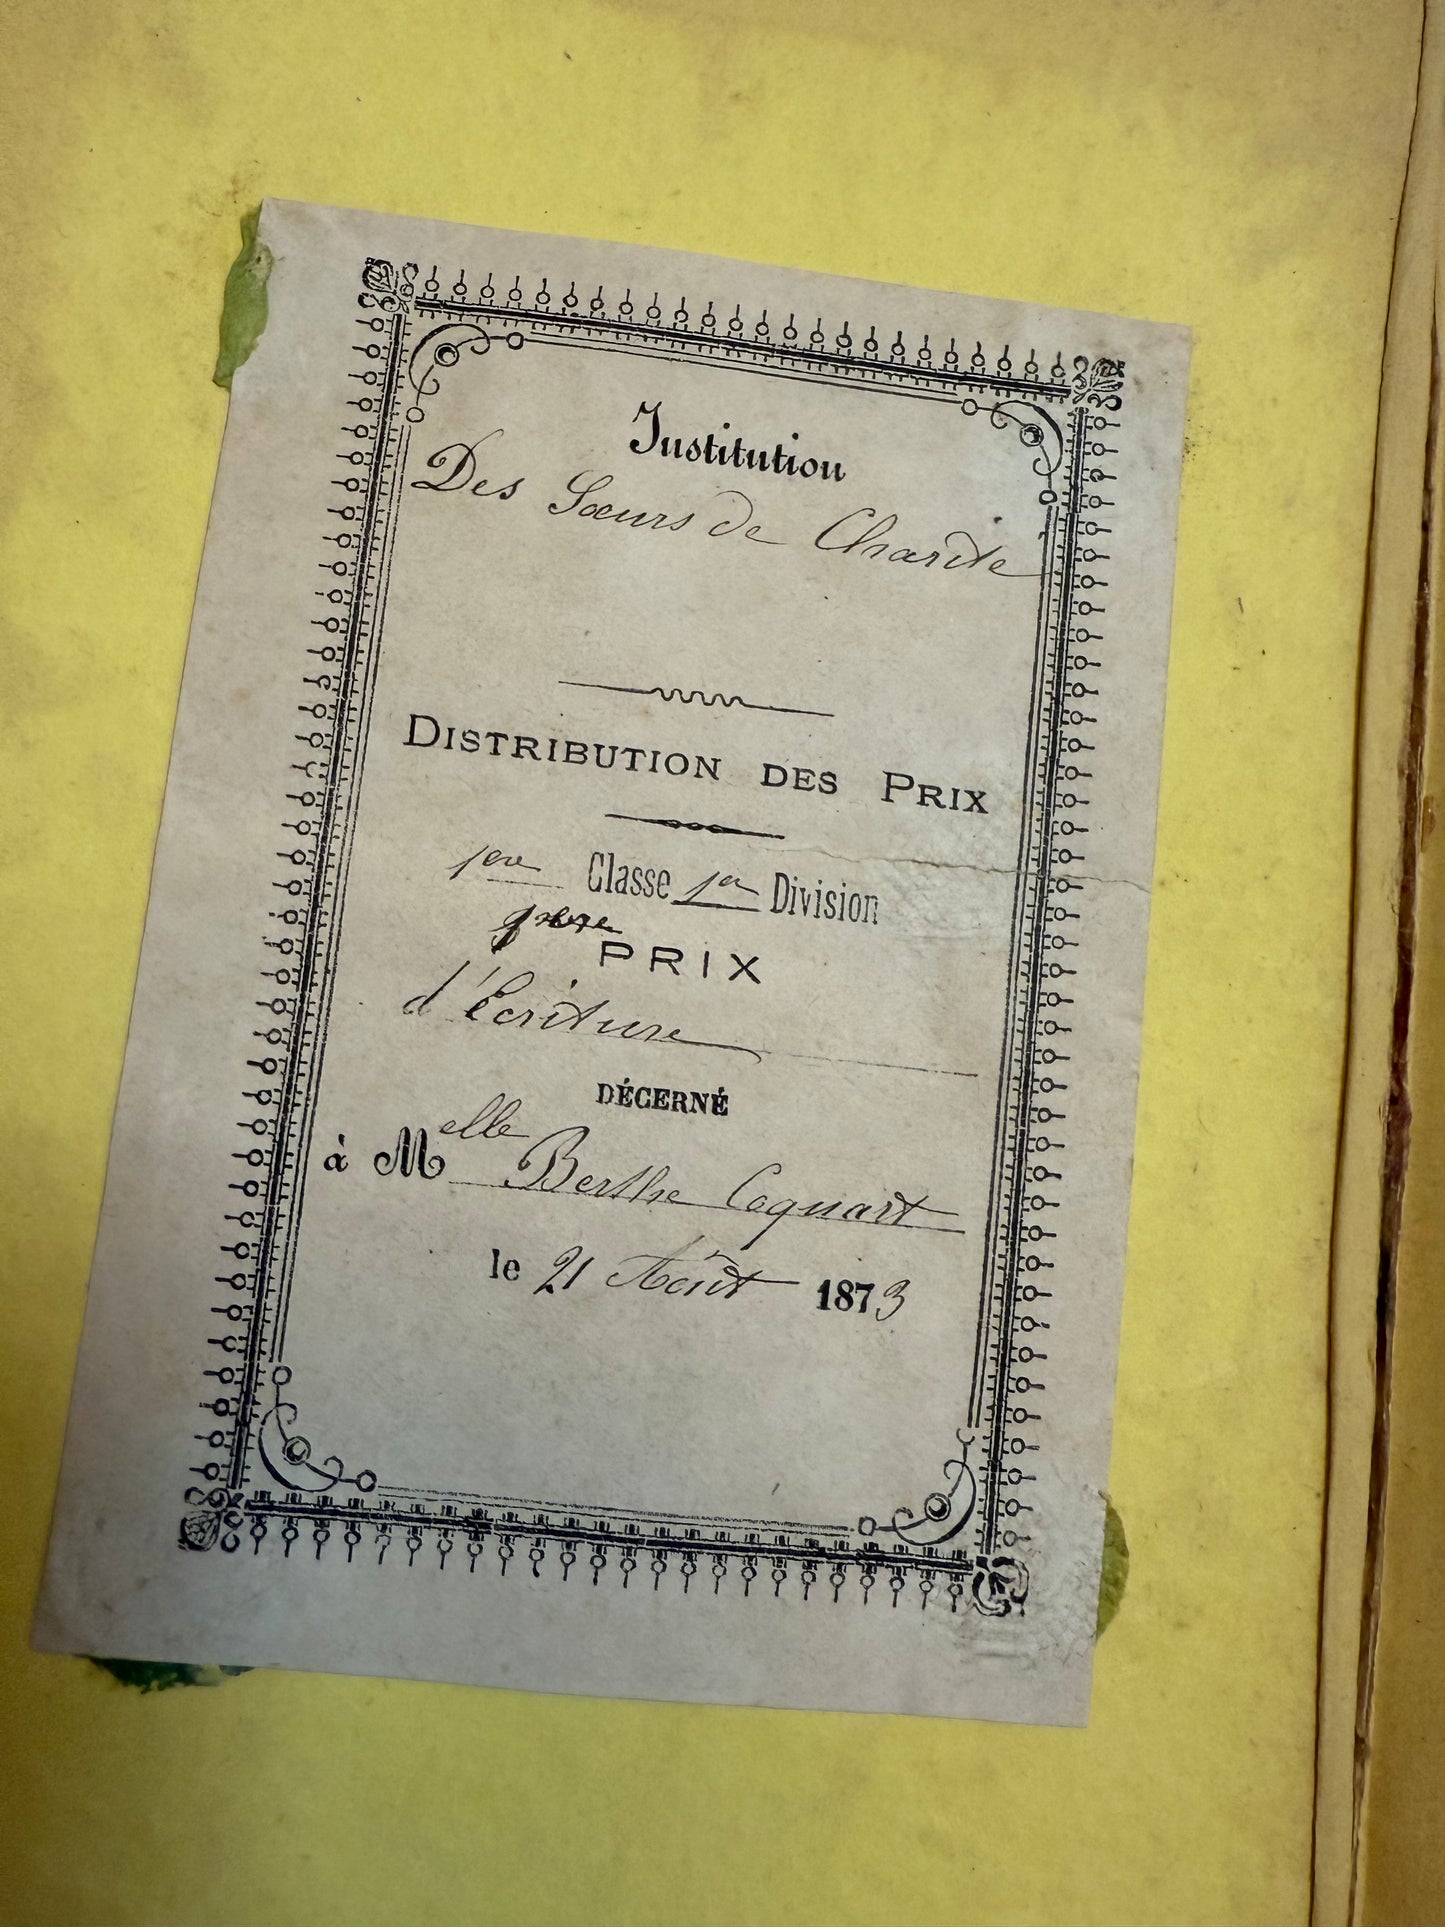 Institution
Des Sœurs de Charite
DISTRIBUTION DES PRIX
1ere Classe 1er Division
PRIX
d'Ecriture
DÉCERNÉ
à Melle Berthe Coquart
le 21 Août 1873